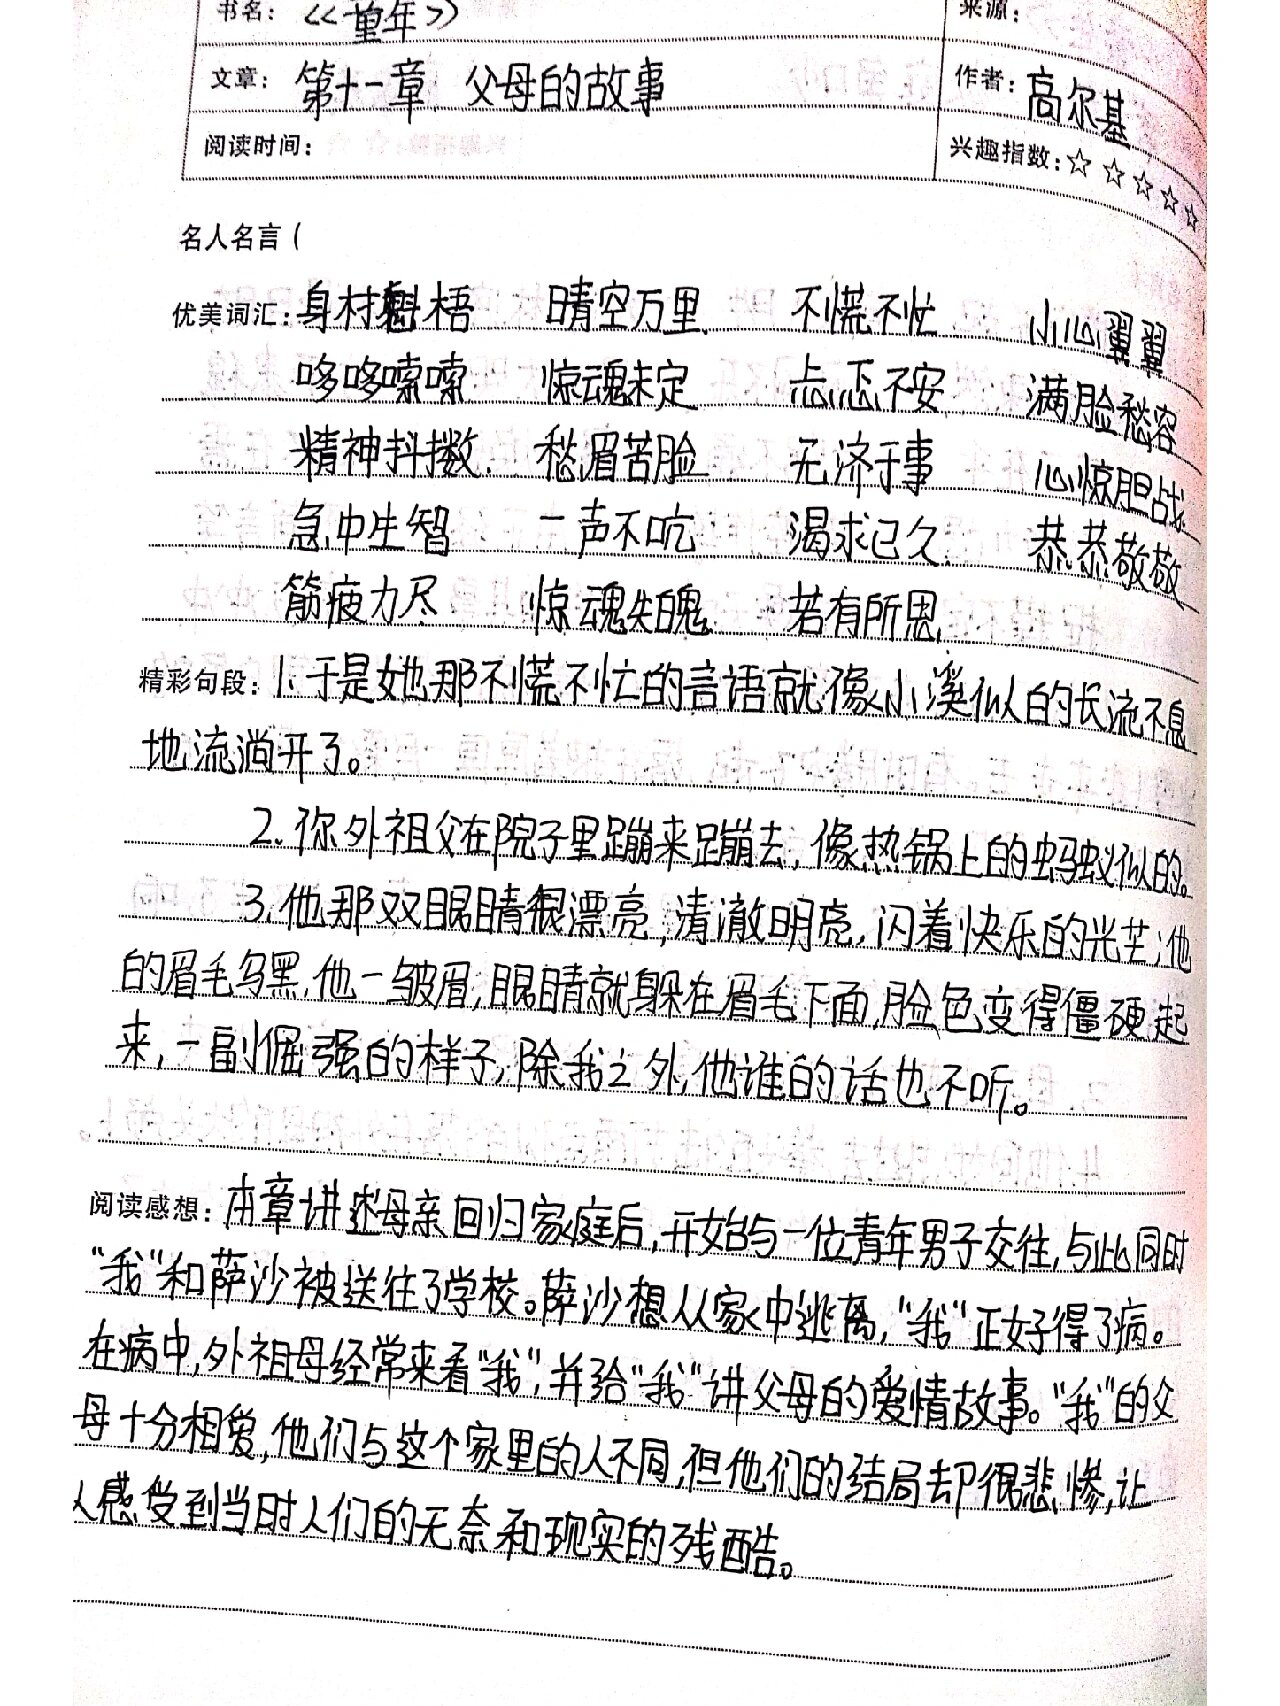 书名: <<童年>> 来源:
文章: 第十一章 父母的故事 作者: 高尔基
阅读时间: 兴趣指数: ☆☆☆☆☆
名人名言(
优美词汇: 身材魁梧 晴空万里 不慌不忙 小心翼翼
哆哆嗦嗦 惊魂未定 忐忑不安 满脸愁容
精神抖擞 愁眉苦脸 无济于事 心惊胆战
急中生智 一声不吭 渴求已久 恭恭敬敬
筋疲力尽 惊魂失魄 若有所思
精彩句段: 1、于是她那不慌不忙的言语就像小溪似的长流不息
地流淌开了。
2、你外祖父在院子里蹦来蹦去,像热锅上的蚂蚁似的。
3、他那双眼睛很漂亮,清澈明亮,闪着快乐的光芒;他
的眉毛乌黑,他一皱眉,眼睛就躲在眉毛下面,脸色变得僵硬起
来,一副倔强的样子,除我之外,他谁的话也不听。
阅读感想: 本章讲述母亲回归家庭后,开始与一位青年男子交往,与此同时
“我”和萨沙被送往了学校。萨沙想从家中逃离,“我”正好得了病。
在病中,外祖母经常来看“我”,并给“我”讲父母的爱情故事。“我”的父
母十分相爱,他们与这个家里的人不同,但他们的结局却很悲惨,让
人感受到当时人们的无奈和现实的残酷。